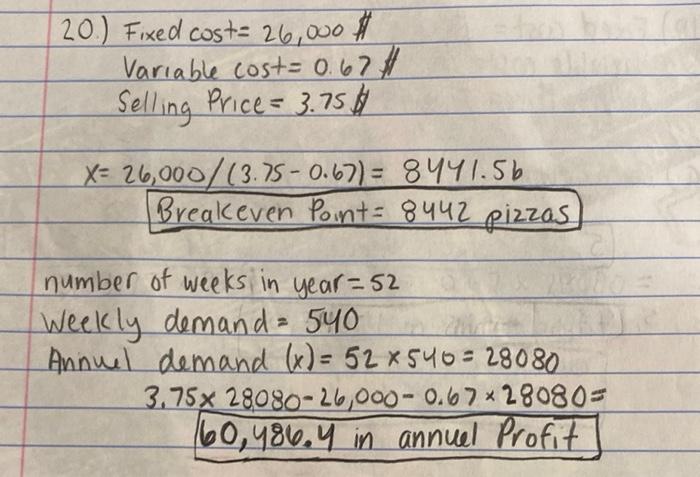 20.) Fixed cost= 26,000 $
Variable cost= 0.67 $
Selling Price = 3.75 $
x= 26,000/(3.75-0.67)= 8441.56
Breakeven Point= 8442 pizzas
number of weeks in year = 52
Weekly demand = 540
Annuel demand (x) = 52 x 540 = 28080
3.75 x 28080-26,000-0.67 x 28080=
60,486.4 in annuel Profit